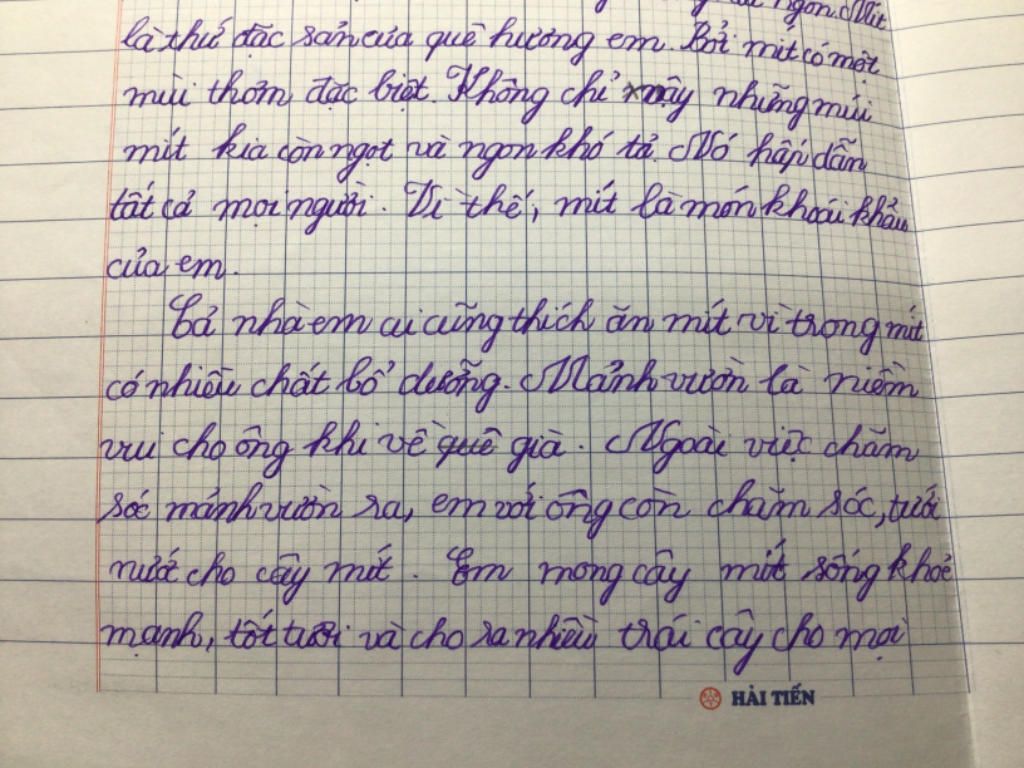 ngon. Mít
là thứ đặc sản của quê hương em. Bởi mít có một
mùi thơm đặc biệt. Không chỉ vậy những múi
mít kia còn ngọt và ngon khó tả. Nó hấp dẫn
tất cả mọi người. Vì thế, mít là món khoái khẩu
của em.
Cả nhà em ai cũng thích ăn mít vì trong mít
có nhiều chất bổ dưỡng. Mảnh vườn là niềm
vui cho ông khi về quê già. Ngoài việc chăm
sóc mảnh vườn ra, em với ông còn chăm sóc, tưới
nướt cho cây mít. Em mong cây mít sống khoẻ
mạnh, tốt tươi và cho ra nhiều trái cây cho mọi
HẢI TIẾN